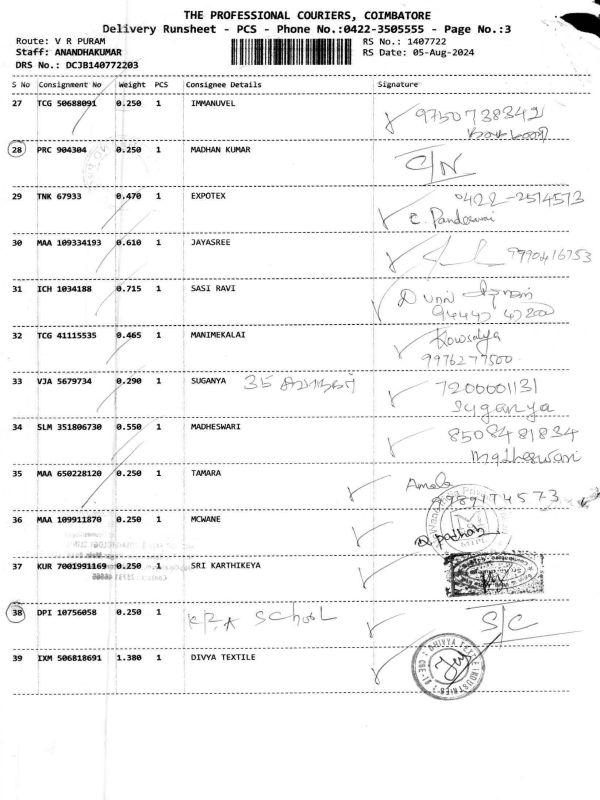 THE PROFESSIONAL COURIERS, COIMBATORE
Delivery Runsheet - PCS - Phone No.:0422-3505555 - Page No.:3
Route: V R PURAM
RS No.: 1407722
Staff: ANANDHAKUMAR
RS Date: 05-Aug-2024
DRS No.: DCJB140772203
S No Consignment No Weight PCS Consignee Details Signature
27 TCG 50688091 0.250 1 IMMANUVEL
9750738342
28 PRC 904304 0.250 1 MADHAN KUMAR C/N
29 TNK 67933 0.470 1 EXPOTEX 0422-2574573
30 MAA 109334193 0.610 1 JAYASREE 9990416753
31 ICH 1034188 0.715 1 SASI RAVI
94447 47200
32 TCG 41115535 0.465 1 MANIMEKALAI Kowsalya
9976277500
33 VJA 5679734 0.290 1 SUGANYA 35 7200001131
Suganya
34 SLM 351806730 0.550 1 MADHESWARI 8508481834
Madheswari
35 MAA 650228120 0.250 1 TAMARA Amala
9989174573
36 MAA 109911870 0.250 1 MCWANE
37 KUR 7001991169 0.250 1 SRI KARTHIKEYA
38 DPI 10756058 0.250 1 SCHOOL S/C
39 IXM 506818691 1.380 1 DIVYA TEXTILE